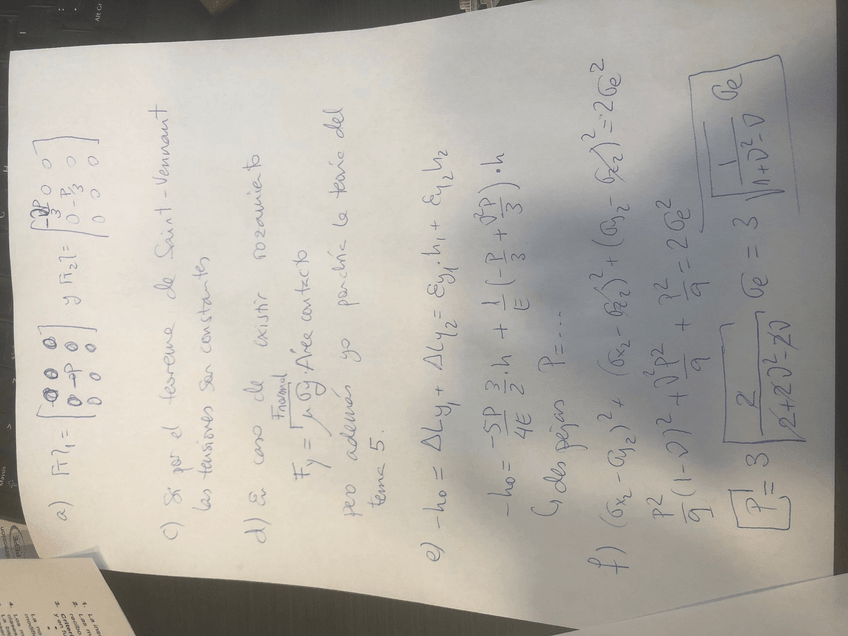 a) [T]₁ = [0 0 0; 0 -P 0; 0 0 0] y [T₂] = [-νP/3 0 0; 0 -P/3 0; 0 0 0]
c) Si por el teorema de Saint-Vennant
las tensiones son constantes
d) En caso de existir rozamiento
Fnormal
Fy = μ σy · Área contacto
pero además yo pondría la teoría del
tema 5.
e) -h₀ = ΔLy₁ + ΔLy₂ = εy₁·h₁ + εy₂ h₂
-h₀ = -5P/4E 3/2·h + 1/E (-P/3 + ν²P/3)·h
↳ despejas P = ...
f) (σx₂ - σy₂)² + (σx₂ - σz₂)² + (σy₂ - σz₂)² = 2σe²
P²/9 (1-ν)² + ν²P²/9 + P²/9 = 2σe²
P = 3 √(2/(2+2ν²-2ν)) σe = 3 √(1/(1+ν²-ν)) σe